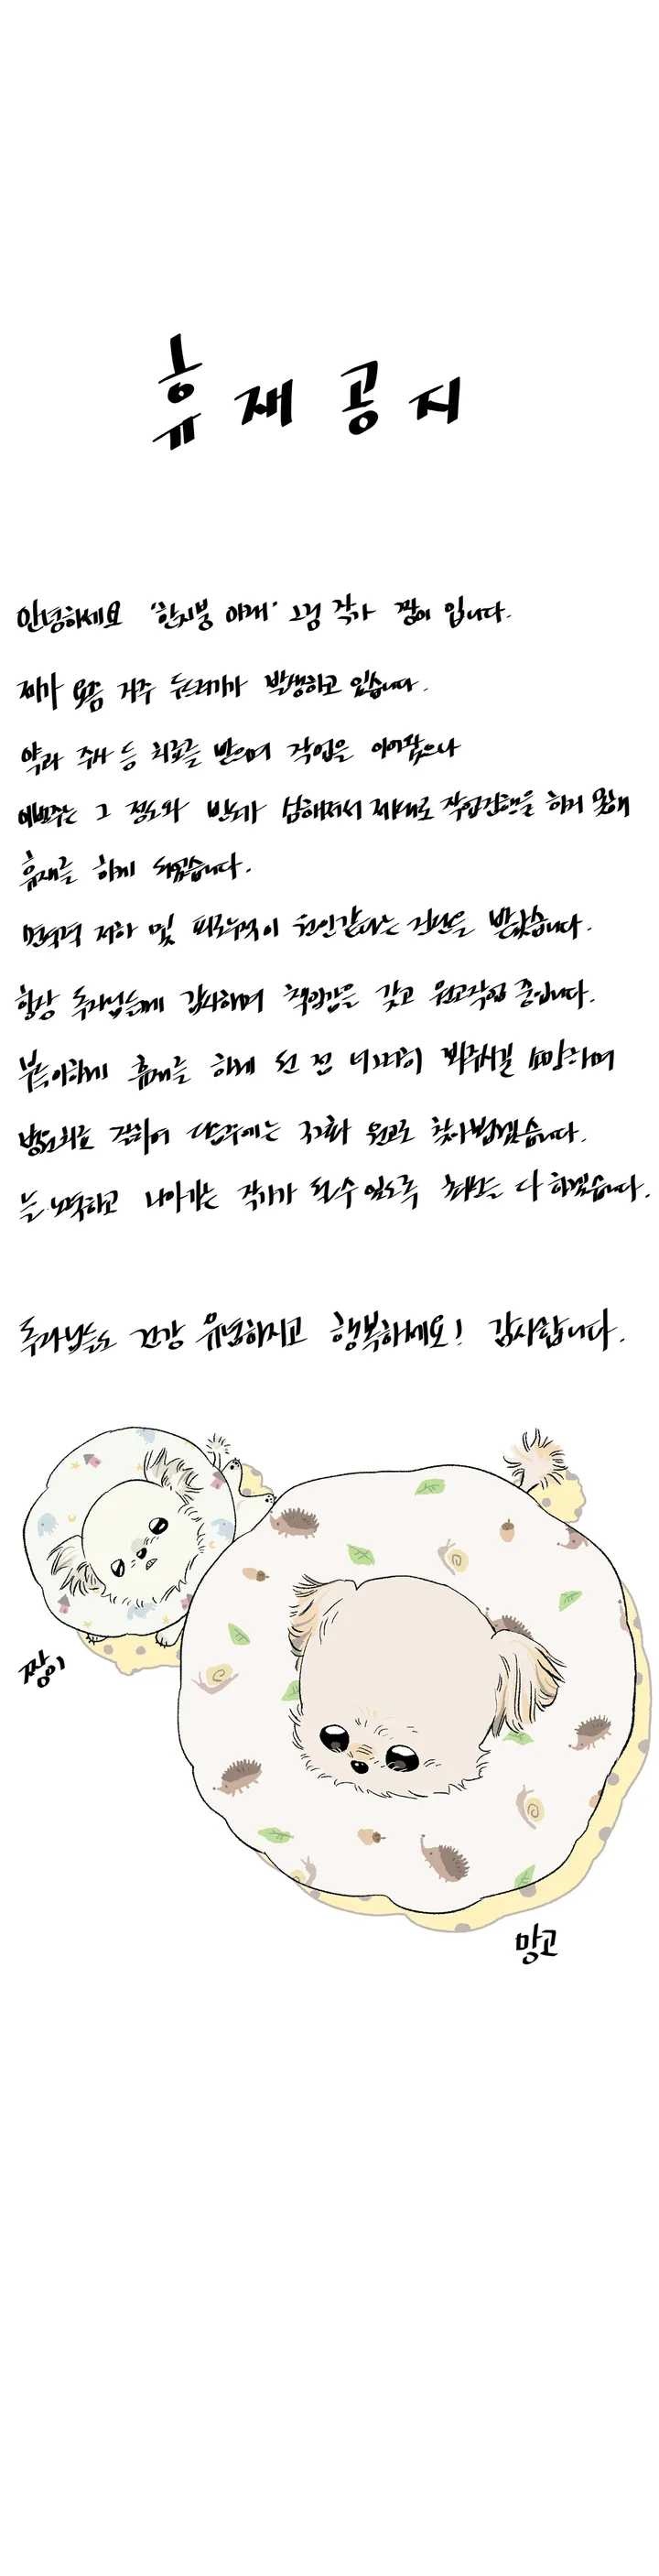 휴재공지
안녕하세요 '한지붕 아래' 그림 작가 짱이 입니다.
제가 요즘 거주 두드러기가 발생하고 있습니다.
약과 주사 등 치료를 받으며 작업을 이어왔으나
이번주는 그 정도와 빈도가 심해져서 제대로 작업진행을 하지 못해
휴재를 하게 되었습니다.
면역력 저하 및 피로누적이 원인같다는 진단을 받았습니다.
항상 독자님들께 감사하며 책임감을 갖고 원고작업 중입니다.
부득이하게 휴재를 하게 된 점 너그러이 봐주시길 소망하며
병원치료 잘하여 다음주에는 정화 원고로 찾아뵙겠습니다.
늘 노력하고 나아가는 작가가 될 수 있도록 최선을 다 하겠습니다.
독자님들도 건강 유념하시고 행복하세요! 감사합니다.
짱이
망고